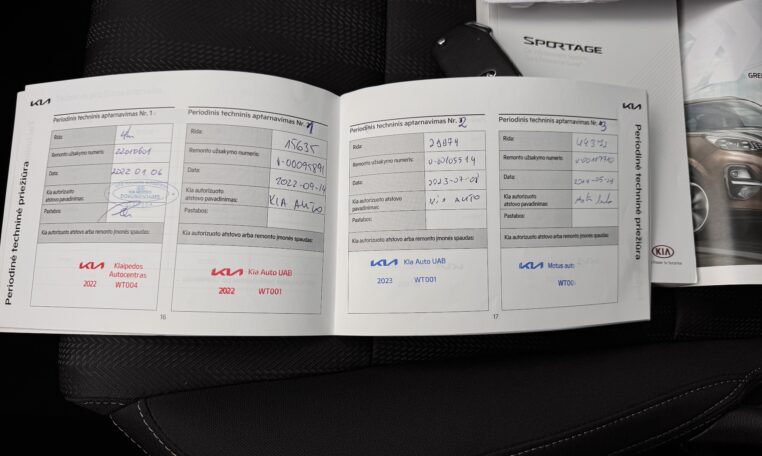 SPORTAGE
KIA
GREI
KIA
Periodinė techninė priežiūra
Periodinis techninis aptarnavimas Nr. 1
Rida:
Remonto užsakymo numeris:
22010601
Data:
2022 01 06
Kia autorizuoto atstovo pavadinimas:
Pastabos:
Kia autorizuoto atstovo arba remonto įmonės spaudas:
KIA Klaipėdos
Autocentras
2022 WT004
Periodinis techninis aptarnavimas Nr. 1
Rida:
15635
Remonto užsakymo numeris:
V-00095891
Data:
2022-09-14
Kia autorizuoto
atstovo pavadinimas:
KIA AUTO
Pastabos:
Kia autorizuoto atstovo arba remonto įmonės spaudas:
KIA Kia Auto UAB
2022 WT001
16
Periodinis techninis aptarnavimas Nr. 2
Rida:
29874
Remonto užsakymo numeris:
Data:
2023-07-08
Kia autorizuoto
atstovo pavadinimas:
KIA AUTO
Pastabos:
Kia autorizuoto atstovo arba remonto įmonės spaudas:
KIA Kia Auto UAB
2023 WT001
Periodinis techninis aptarnavimas Nr. 3
Rida:
Remonto užsakymo numeris:
Data:
Kia autorizuoto
atstovo pavadinimas:
Pastabos:
Kia autorizuoto atstovo arba remonto įmonės spaudas:
KIA Motus auto
WT00
17
KIA
Periodinė techninė priežiūra
KIA